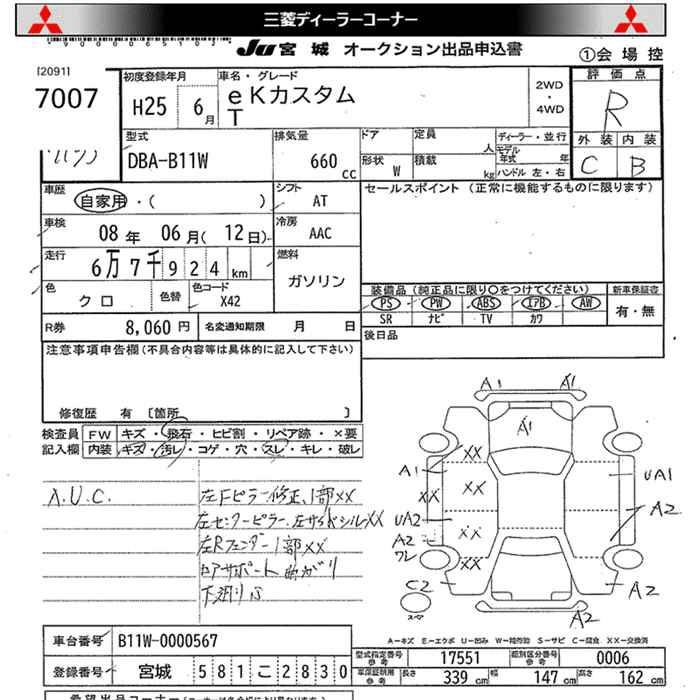 三菱ディーラーコーナー
JU 宮城 オークション出品申込書 ①会場控
[2091]
7007
初度登録年月 H25 6月
車名・グレード
eKカスタム
T
2WD・4WD
評価点
R
外装 内装
C B
型式
DBA-B11W
排気量
660 CC
ドア 定員 人
形状 W 積載 kg
ディーラー・並行
モデル年式 年
ハンドル 左・右
車歴 自家用・( )
シフト AT
セールスポイント (正常に機能するものに限ります)
車検 08年 06月(12日)
冷房 AAC
走行 6万7千924km
燃料 ガソリン
色 クロ 色替 色コード X42
装備品(純正品に限り○をつけてください) 新車保証書
PS PW ABS エアB AW 有・無
SR ナビ TV カワ
R券 8,060円 名変通知期限 月 日
後日品
注意事項申告欄(不具合内容等は具体的に記入して下さい)
修復歴 有 〔箇所 〕
検査員記入欄
FW キズ・飛石・ヒビ割・リペア跡・×要
内装 キズ・汚レ・コゲ・穴・スレ・キレ・破レ
A.U.C.
左Fピラー修正、1部XX
左センターピラー、左サイドシルXX
左Rフェンダー1部XX
コアサポート曲がり
A1 A1
A1
XX
A1 UA1
XX XX
UA2 A2
XX
A2
ワレ
XX
C2 A2
スペア
A2
A-キズ E-エクボ U-凹み W-補修跡 S-サビ C-腐食 XX-交換済
車台番号 B11W-0000567
登録番号 宮城 581こ2830
型式指定番号 参考 17551 類別区分番号 参考 0006
車庫証明用 参考 長さ 339cm 幅 147cm 高さ 162cm